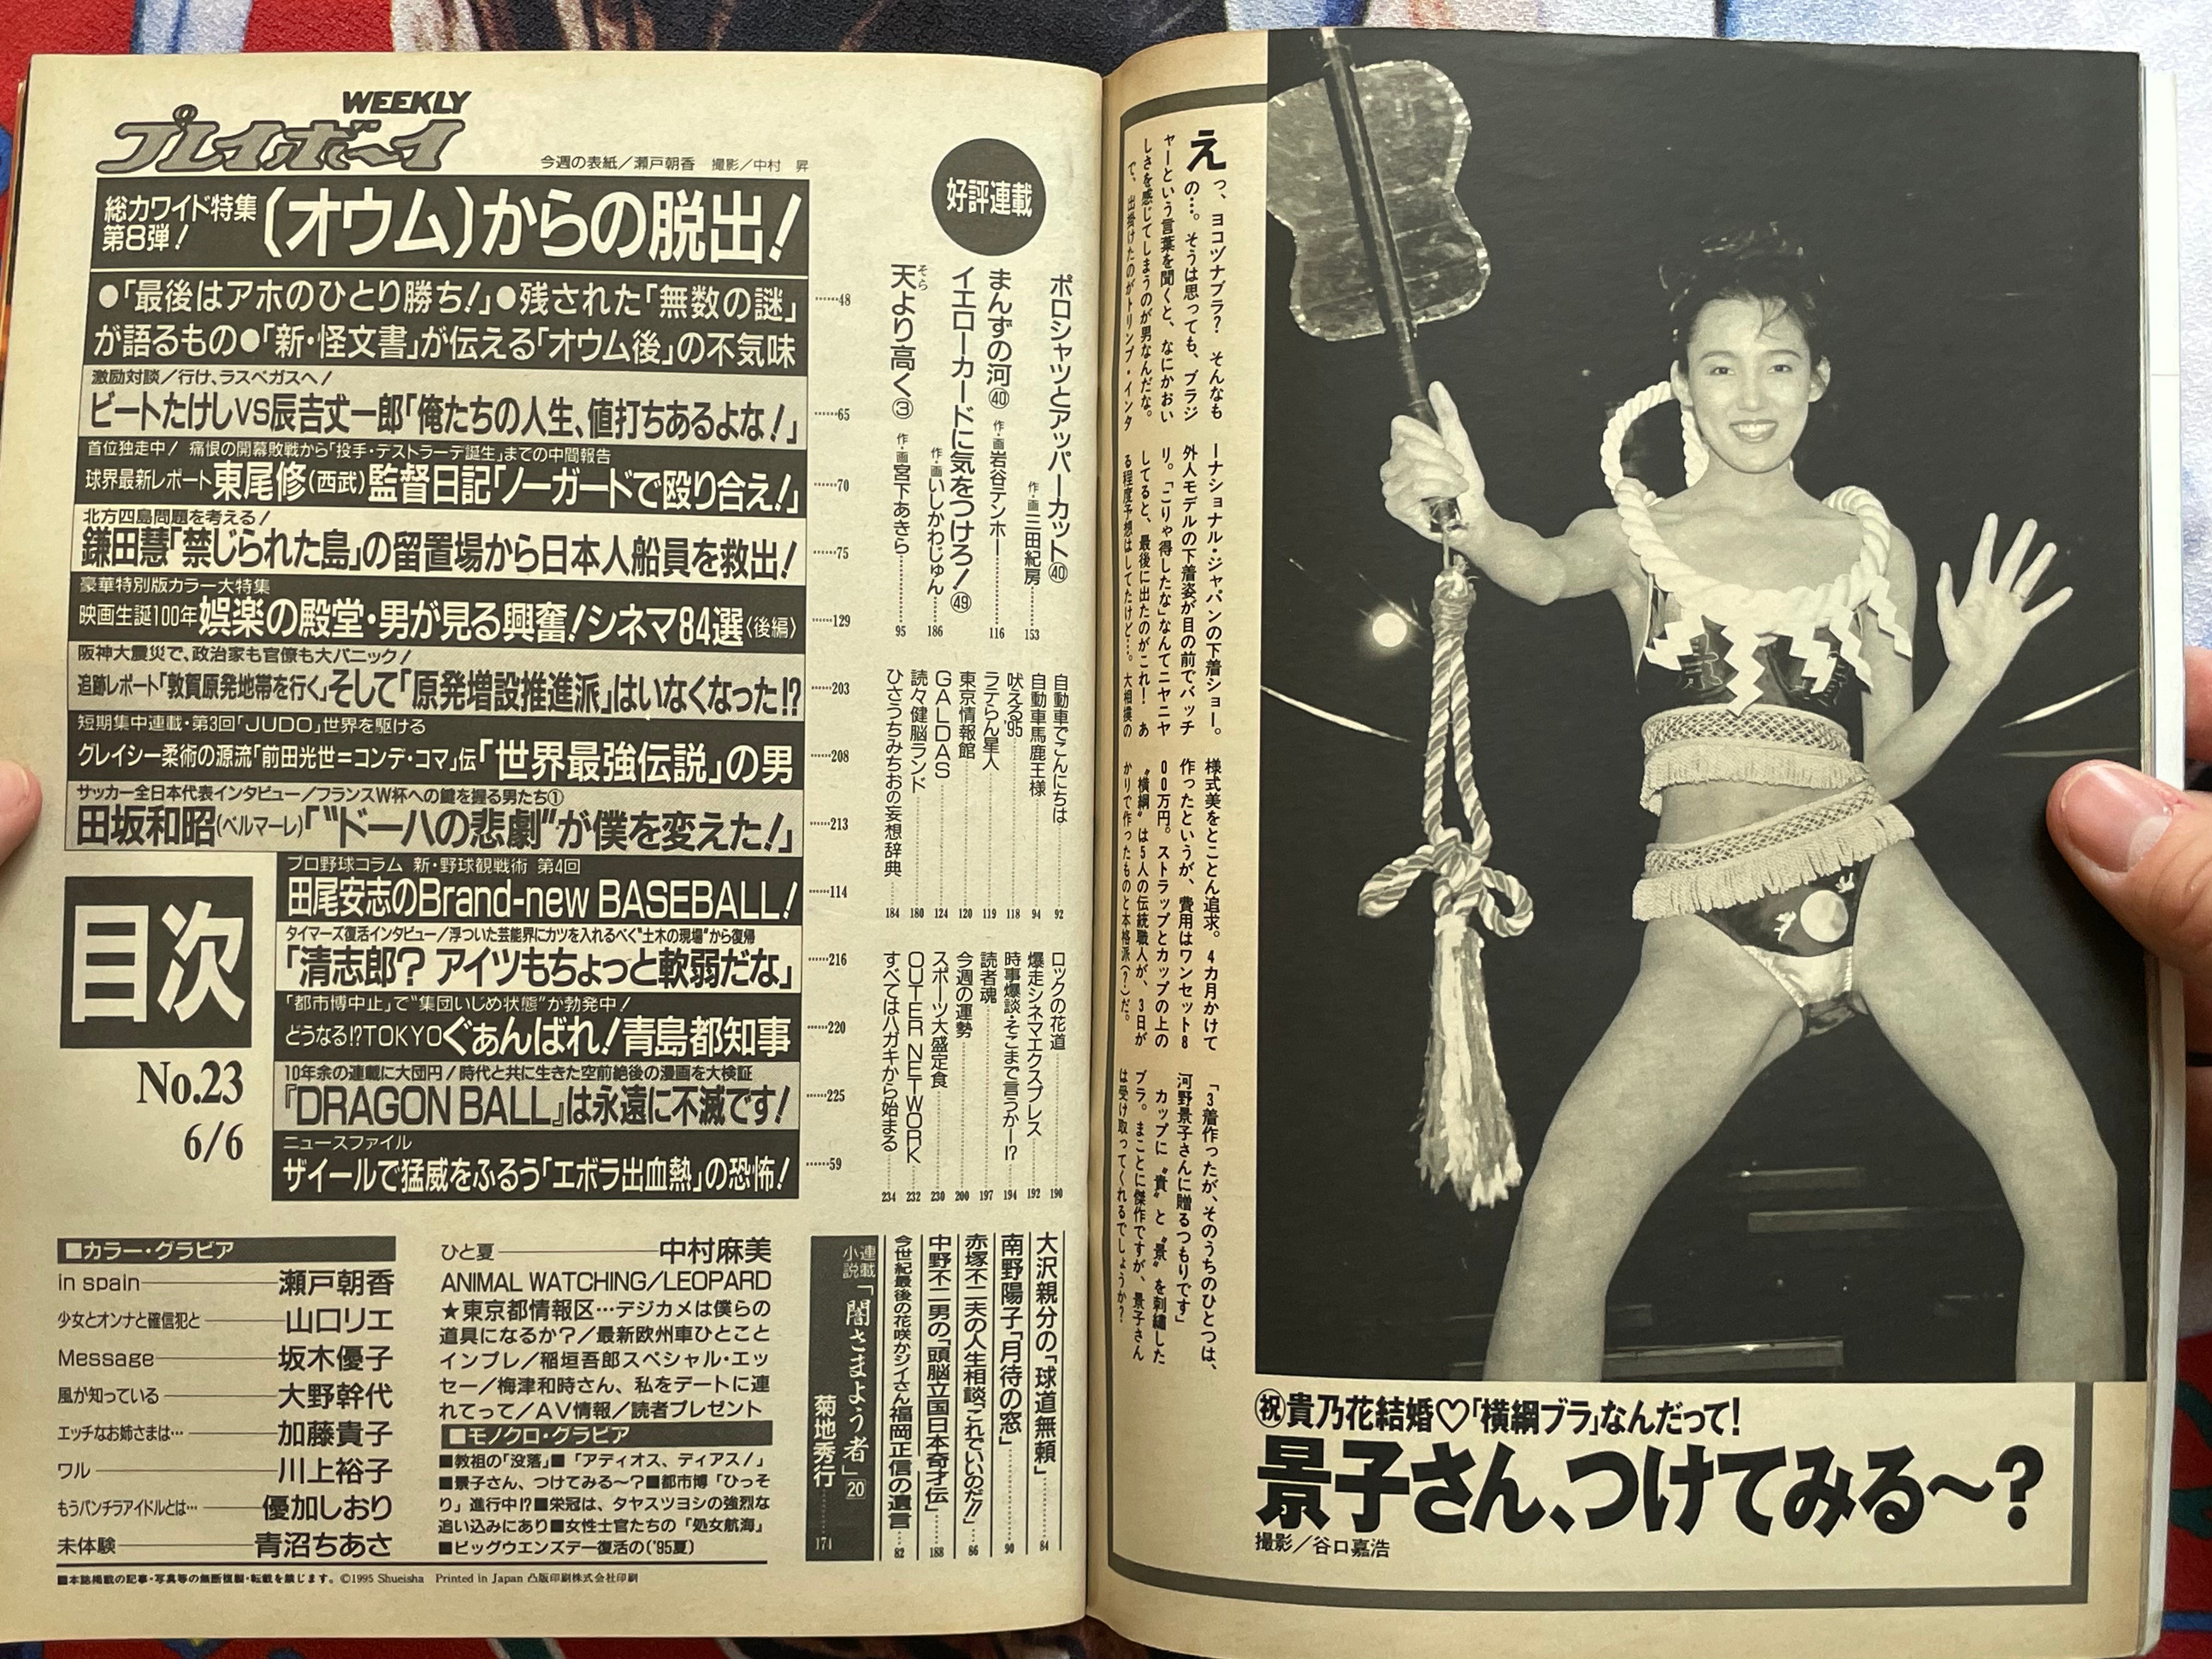 WEEKLY
プレイボーイ
今週の表紙/瀬戸朝香 撮影/中村 昇
総力ワイド特集
第8弾!
(オウム)からの脱出!
●「最後はアホのひとり勝ち!」●残された「無数の謎」
が語るもの●「新・怪文書」が伝える「オウム後」の不気味
……48
激励対談/行け、ラスベガスへ!
ビートたけしVS辰吉丈一郎「俺たちの人生、値打ちあるよな!」
……65
首位独走中! 痛恨の開幕敗戦から「投手・デストラーデ誕生」までの中間報告
球界最新レポート東尾修(西武)監督日記「ノーガードで殴り合え!」
……70
北方四島問題を考える!
鎌田慧「禁じられた島」の留置場から日本人船員を救出!
……75
豪華特別版カラー大特集
映画生誕100年娯楽の殿堂・男が見る興奮!シネマ84選〈後編〉
……129
阪神大震災で、政治家も官僚も大パニック!
追跡レポート「敦賀原発地帯を行く」そして「原発増設推進派」はいなくなった!?
……203
短期集中連載・第3回「JUDO」世界を駆ける
グレイシー柔術の源流「前田光世=コンデ・コマ」伝「世界最強伝説」の男
……208
サッカー全日本代表インタビュー/フランスW杯への鍵を握る男たち①
田坂和昭(ベルマーレ)「"ドーハの悲劇"が僕を変えた!」
……213
プロ野球コラム 新・野球観戦術 第4回
田尾安志のBrand-new BASEBALL!
……114
タイマーズ復活インタビュー/浮ついた芸能界にカツを入れるべく"土木の現場"から復帰
「清志郎? アイツもちょっと軟弱だな」
……216
「都市博中止」で"集団いじめ状態"が勃発中!
どうなる!?TOKYOぐぁんばれ!青島都知事
……220
10年余の連載に大団円!時代と共に生きた空前絶後の漫画を大検証
『DRAGON BALL』は永遠に不滅です!
……225
ニュースファイル
ザイールで猛威をふるう「エボラ出血熱」の恐怖!
……59
目次
No.23
6/6
好評連載
ポロシャツとアッパーカット㊵ 作・画三田紀房……153
まんずの河㊵ 作・画岩谷テンホー……116
イエローカードに気をつけろ!㊾ 作・画いしかわじゅん……186
天より高く③ 作・画宮下あきら……95
そら
自動車でこんにちは……92
自動車馬鹿王様……94
吠える'95……118
ラテらん星人……119
東京情報館……120
GALDAS……124
読々健脳ランド……180
ひさうちみちおの妄想辞典……184
ロックの花道……190
爆走シネマエクスプレス……192
時事爆談・そこまで言うかー!?……194
読者魂……197
今週の運勢……200
スポーツ大盛定食……230
OUTER NETWORK……232
すべてはハガキから始まる……234
大沢親分の「球道無頼」……84
南野陽子「月待の窓」……90
赤塚不二夫の人生相談「これでいいのだ!!」……86
中野不二男の「頭脳立国日本奇才伝」……188
今世紀最後の花咲かジイさん福岡正信の遺言……82
連載小説「闇さまよう者」⑳
菊地秀行……174
■カラー・グラビア
in spain――瀬戸朝香
少女とオンナと確信犯と――山口リエ
Message――坂木優子
風が知っている――大野幹代
エッチなお姉さまは…――加藤貴子
ワル――川上裕子
もうパンチラアイドルとは…――優加しおり
未体験――青沼ちあさ
ひと夏――中村麻美
ANIMAL WATCHING/LEOPARD
★東京都情報区…デジカメは僕らの
道具になるか?/最新欧州車ひとこと
インプレ/稲垣吾郎スペシャル・エッ
セー/梅津和時さん、私をデートに連
れてって/AV情報/読者プレゼント
■モノクロ・グラビア
■教祖の「没落」■「アディオス、ディアス!」
■景子さん、つけてみる〜?■都市博「ひっそ
り」進行中!?■栄冠は、タヤスツヨシの強烈な
追い込みにあり■女性士官たちの「処女航海」
■ビッグウエンズデー復活の〔'95夏〕
■本誌掲載の記事・写真等の無断複製・転載を禁じます。©1995 Shueisha Printed in Japan 凸版印刷株式会社印刷
えっ、ヨコヅナブラ? そんなも
の…。そうは思っても、ブラジ
ャーという言葉を聞くと、なにかおい
しさを感じてしまうのが男なんだな。
で、出掛けたのがトリンプ・インタ
ーナショナル・ジャパンの下着ショー。
外人モデルの下着姿が目の前でバッチ
リ。「こりゃ得したな」なんてニヤニヤ
してると、最後に出たのがこれ! あ
る程度予想はしてたけど…。大相撲の
様式美をとことん追求。4カ月かけて
作ったというが、費用はワンセット8
00万円。ストラップとカップの上の
"横綱"は5人の伝統職人が、3日が
かりで作ったものと本格派(?)だ。
「3着作ったが、そのうちのひとつは、
河野景子さんに贈るつもりです」
カップに"貴"と"景"を刺繡した
ブラ。まことに傑作ですが、景子さん
は受け取ってくれるでしょうか?
㊗貴乃花結婚♡「横綱ブラ」なんだって!
景子さん、つけてみる〜?
撮影/谷口嘉浩